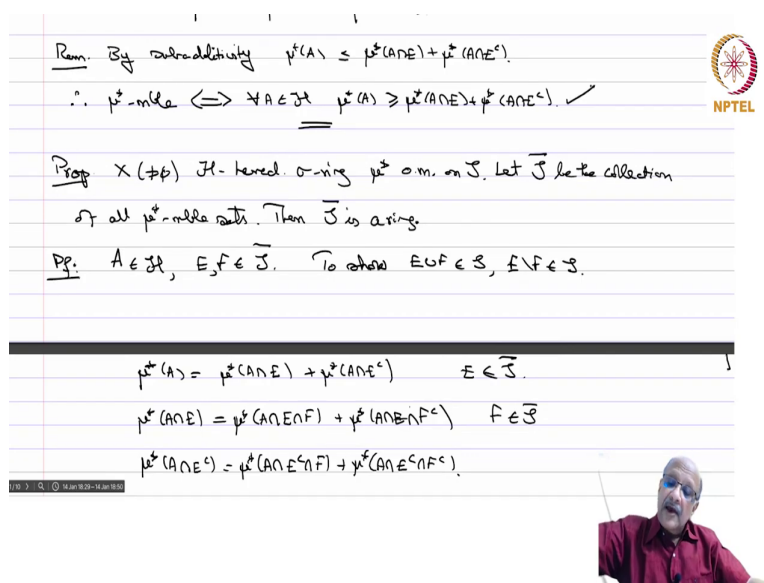 Rem. By subadditivity μ*(A) ≤ μ*(A∩E) + μ*(A∩E^c).
∴ μ*-mble ⟺ ∀A∈H μ*(A) ≥ μ*(A∩E) + μ*(A∩E^c). ✓
NPTEL
Prop X(≠φ) H-hered. σ-ring μ* o.m. on S. Let S̄ be the collection
of all μ*-mble sets. Then S̄ is a ring.
Pf: A∈H, E,F∈S̄. To show E∪F∈S, E\F∈S.
μ*(A) = μ*(A∩E) + μ*(A∩E^c) E∈S̄.
μ*(A∩E) = μ*(A∩E∩F) + μ*(A∩E∩F^c) F∈S̄
μ*(A∩E^c) = μ*(A∩E^c∩F) + μ*(A∩E^c∩F^c).
14 Jan 18:29-14 Jan 18:50